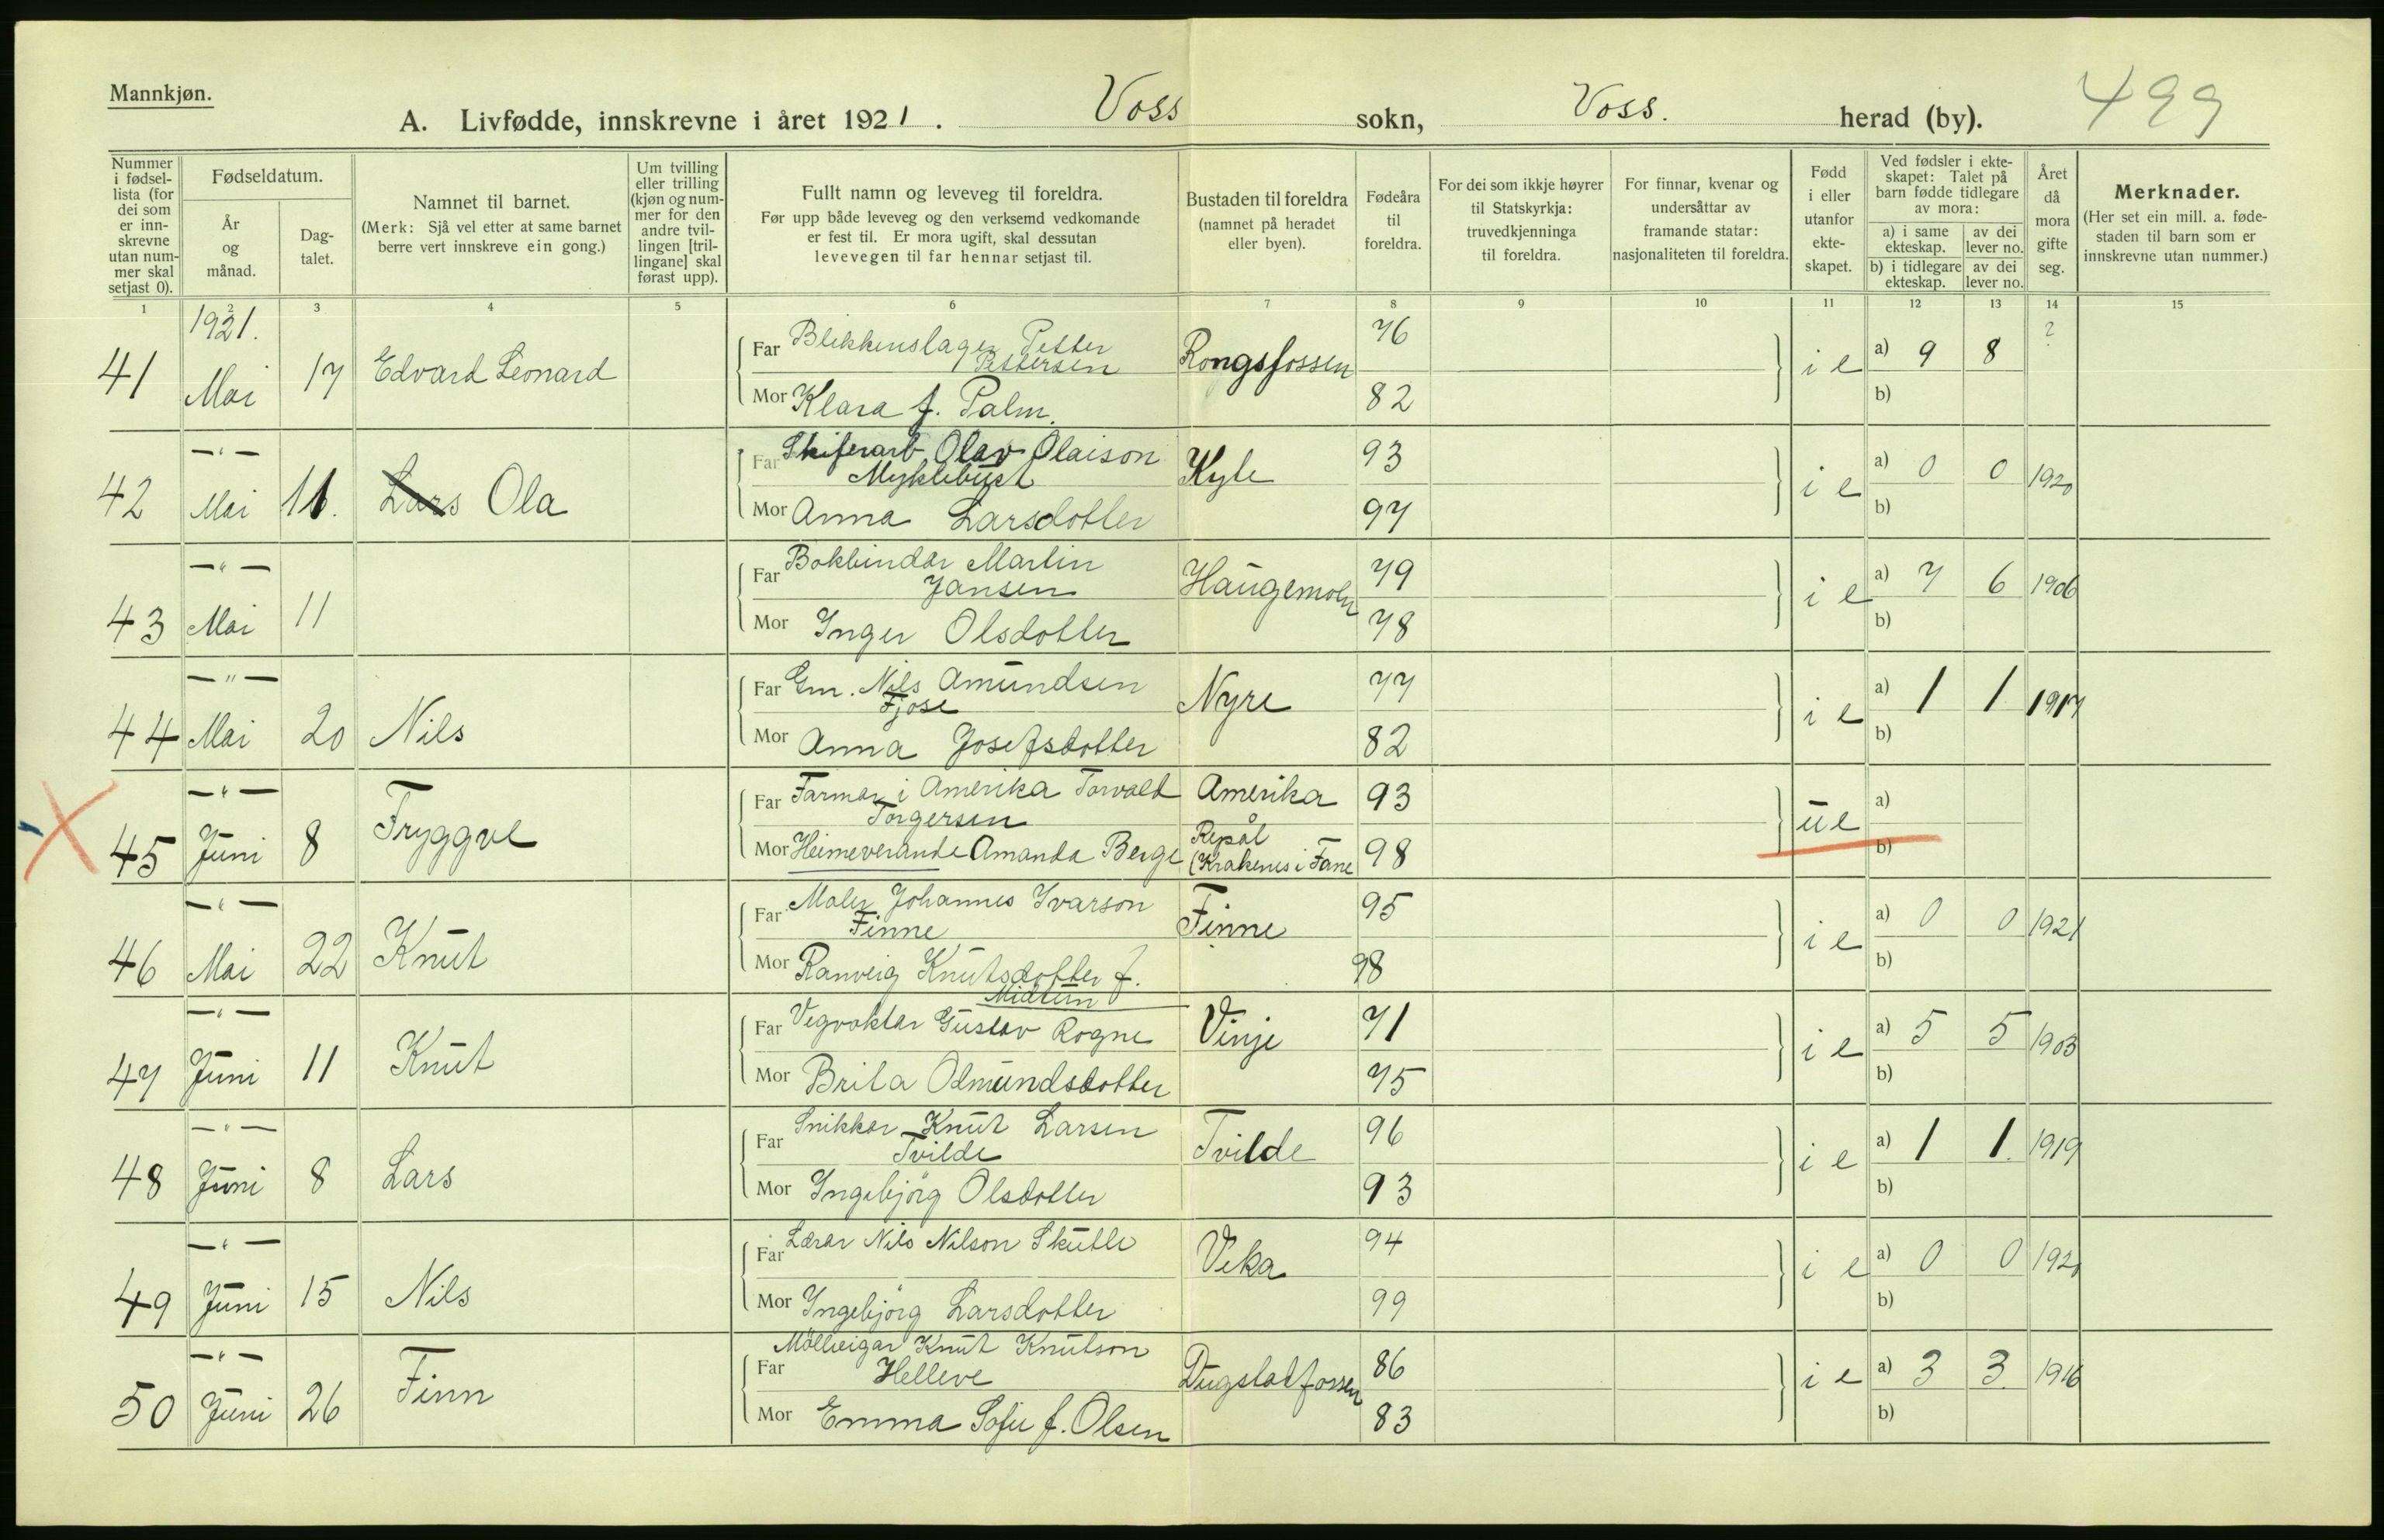 Mannkjøn.
A. Livfødde, innskrevne i året 1921. Voss sokn, Voss. herad (by). 499
Nummer i fødsel-lista (for dei som er inn-skrevne utan num-mer skal setjast 0).
Fødseldatum.
År og månad.
Dag-talet.
Namnet til barnet.
(Merk: Sjå vel etter at same barnet berre vert innskreve ein gong.)
Um tvilling eller trilling (kjøn og num-mer for den andre tvil-lingen [tril-lingane] skal førast upp).
Fullt namn og leveveg til foreldra.
Før upp både leveveg og den verksemd vedkomande er fest til. Er mora ugift, skal dessutan levevegen til far hennar setjast til.
Bustaden til foreldra (namnet på heradet eller byen).
Fødeåra til foreldra.
For dei som ikkje høyrer til Statskyrkja: truvedkjenninga til foreldra.
For finnar, kvenar og undersåttar av framande statar: nasjonaliteten til foreldra.
Fødd i eller utanfor ekte-skapet.
Ved fødsler i ekte-skapet: Talet på barn fødde tidlegare av mora:
a) i same ekteskap. av dei lever no.
b) i tidlegare ekteskap. av dei lever no.
Året då mora gifte seg.
Merknader.
(Her set ein mill. a. føde-staden til barn som er innskrevne utan nummer.)
1 2 3 4 5 6 7 8 9 10 11 12 13 14 15
1921.
41 Mai 17 Edvard Leonard Far Blikkenslager Petter Pettersen Rongsfossen 76 i e a) 9 8 ?
Mor Klara f. Palm. 82 b)
— " —
42 Mai 11. Lars Ola Far Skiferarb. Olav Olaison Myklebust Kyte 93 i e a) 0 0 1920
Mor Anna Larsdotter 97 b)
— " —
43 Mai 11 Far Bokbindar Martin Jansen Haugemoen 79 i e a) 7 6 1906
Mor Inger Olsdotter 78 b)
— " —
44 Mai 20 Nils Far Gm. Nils Amundsen Fjose Nyre 77 i e a) 1 1 1917
Mor Anna Josefsdotter 82 b)
— " —
45 Juni 8 Tryggve Far Farmar i Amerika Torvald Torgersen Amerika 93 ue a)
Mor Heimeverande Amanda Berge Repål (Krakenes i Fane 98 b)
— " —
46 Mai 22 Knut Far Maler Johannes Ivarson Finne Finne 95 i e a) 0 0 1921
Mor Ranveig Knutsdotter f. Midtun 98 b)
— " —
47 Juni 11 Knut Far Vegvaktar Gustav Rogne Vinje 71 i e a) 5 5 1903
Mor Brita Odmundsdotter 75 b)
— " —
48 Juni 8 Lars Far Snikkar Knut Larsen Tvilde Tvilde 96 i e a) 1 1. 1919
Mor Ingebjörg Olsdotter 93 b)
— " —
49 Juni 15 Nils Far Lærar Nils Nilson Skutle Veka 94 i e a) 0 0 1920
Mor Ingebjörg Larsdotter 99 b)
— " —
50 Juni 26 Finn Far Mölleeigar Knut Knutson Helleve Dugstadfossen 86 i e a) 3 3. 1916
Mor Emma Sofie f. Olsen 83 b)